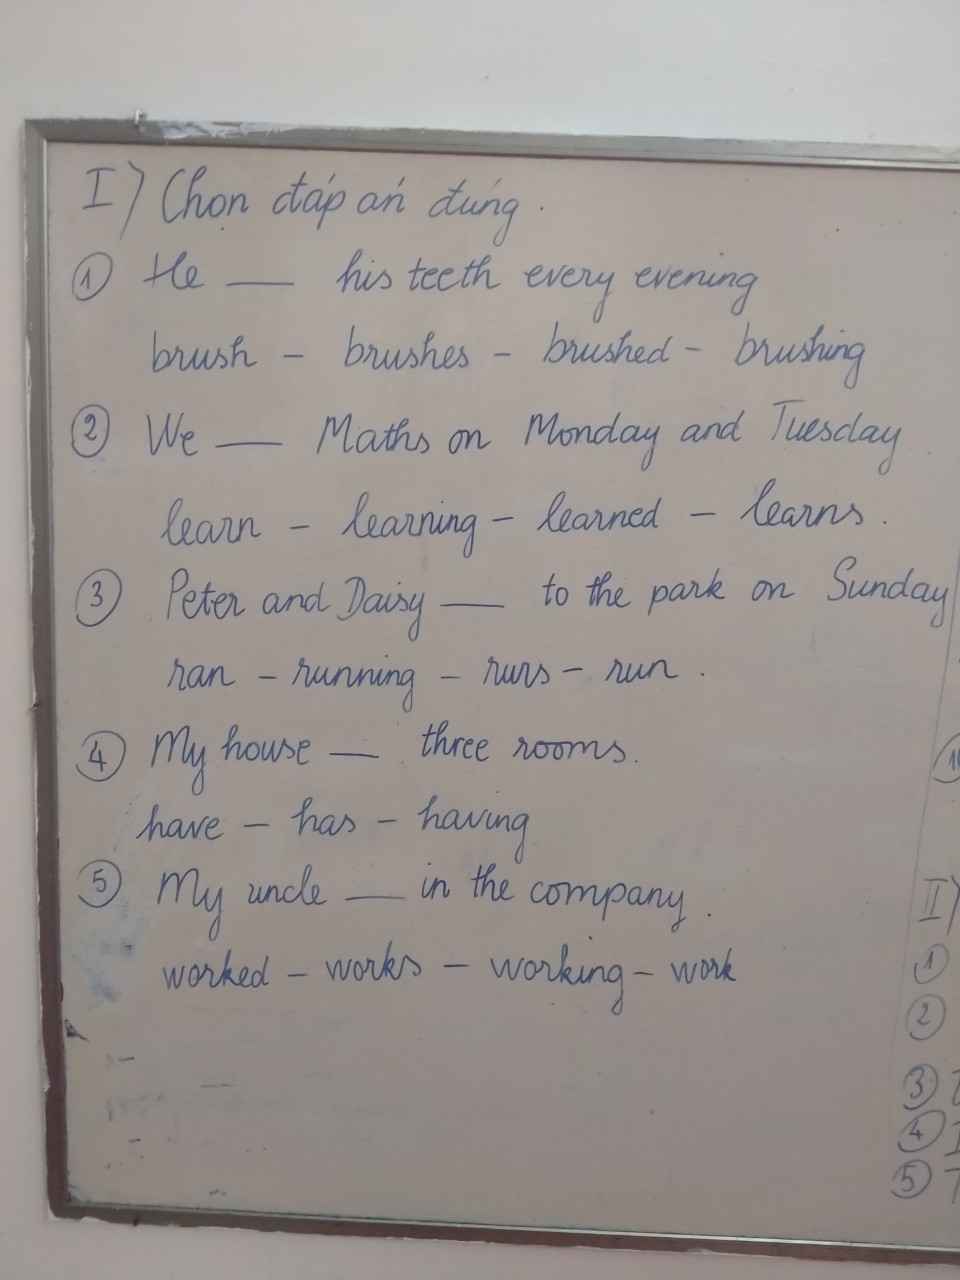 I) Chọn đáp án đúng.
① He ___ his teeth every evening
brush - brushes - brushed - brushing
② We ___ Maths on Monday and Tuesday.
learn - learning - learned - learns.
③ Peter and Daisy ___ to the park on Sunday
ran - running - runs - run.
④ My house ___ three rooms.
have - has - having
⑤ My uncle ___ in the company.
worked - works - working - work
II)
①
②
③
④
⑤